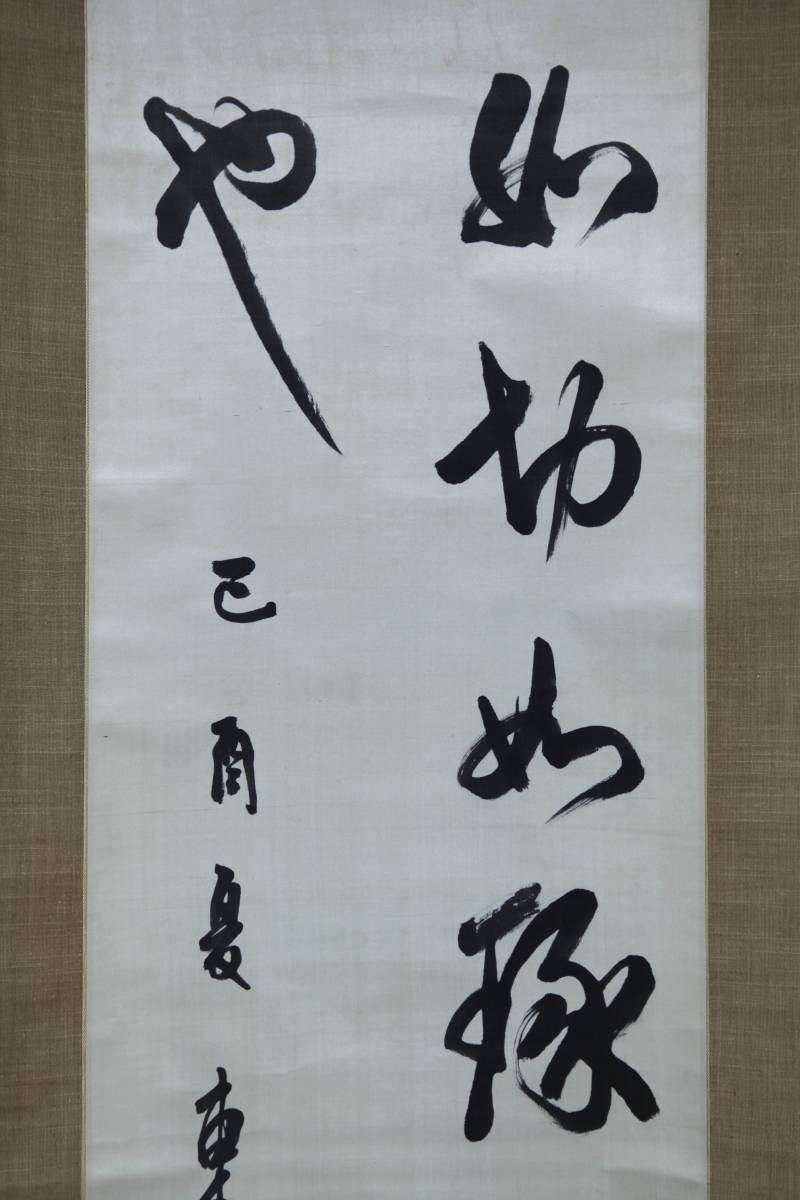 如切如琢
也 己酉夏東